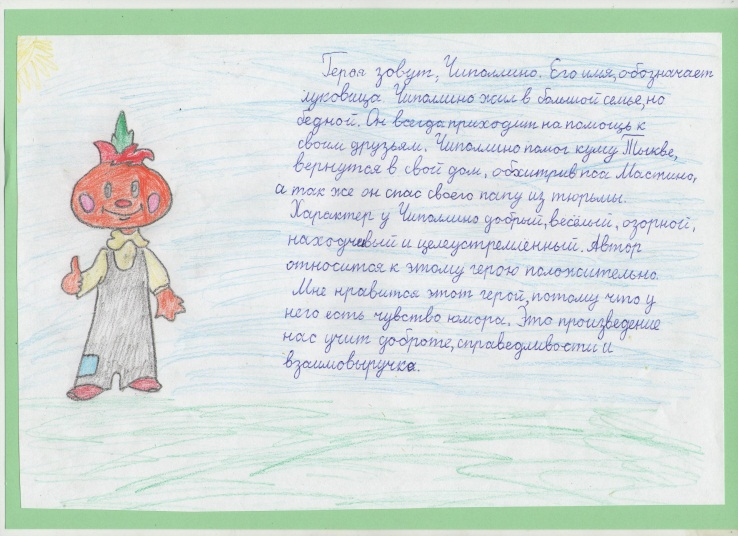 Героя зовут, Чиполлино. Его имя, обозначает
луковица. Чиполлино жил в большой семье, но
бедной. Он всегда приходит на помощь к
своим друзьям. Чиполлино помог куму Тыкве,
вернутся в свой дом, обхитрив пса Мастино,
а так же он спас своего папу из тюрьмы.
Характер у Чиполлино добрый, весёлый, озорной,
находчивый и целеустремленный. Автор
относится к этому герою положительно.
Мне нравится этот герой, потому что у
него есть чувство юмора. Это произведение
нас учит доброте, справедливости и
взаимовыручке.